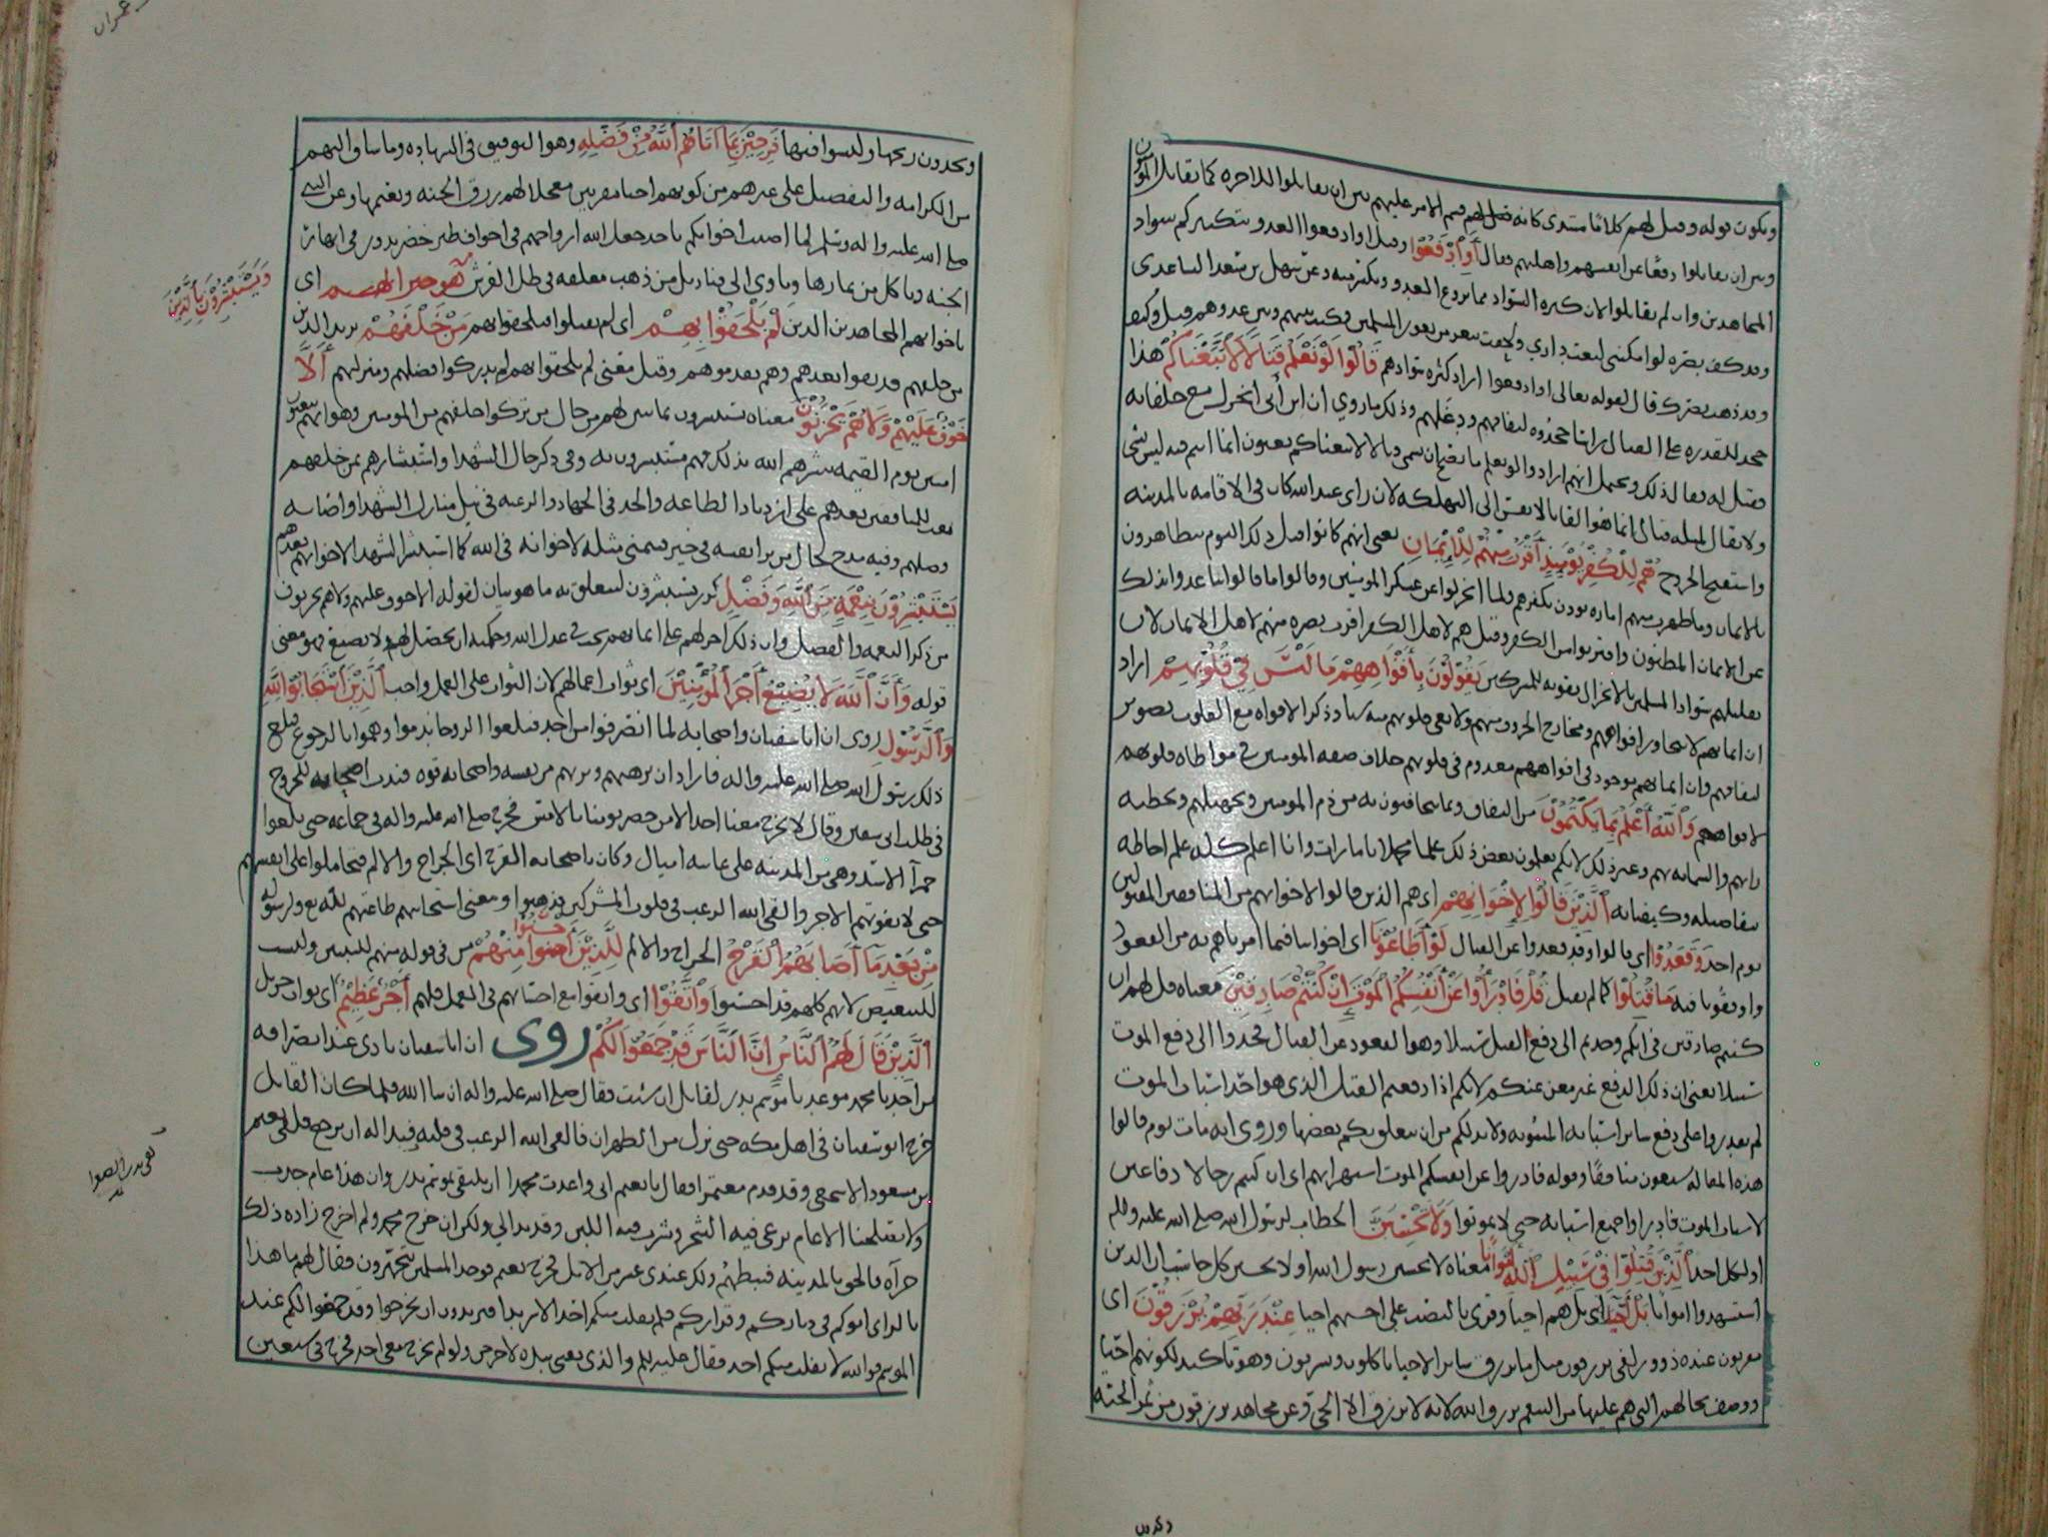 ويكون قوله وقيل لهم كلاما مبتدى قسم الامر عليهم بين ان يقاتلوا للاخره كما يقاتل المومنون
وبين ان يقاتلوا دفعا عن انفسهم واهليهم فقال أَوِ ادْفَعُوا وقيل او ادفعوا العدو بتكثيركم سواد
المجاهدين وان لم يقاتلوا لان كثره السواد مما يروع العدو وعن سهل بن سعد الساعدي
وقد كف بصره لو امكنني لبعت داري ولحقت بثغر من ثغور المسلمين فكنت بينهم وبين عدوهم قيل وكيف
وقد ذهب بصرك قال لقوله تعالى او ادفعوا اراد كثره سوادهم قَالُوا لَوْ نَعْلَمُ قِتَالًا لَاتَّبَعْنَاكُمْ هذا
جحد للقدره على القتال لنفاقهم ودغلهم وذلك ما روي ان ابن أبى انخزل مع حلفائه
فقيل له فقال ذلك ويحتمل انهم ارادوا لو نعلم ما يصح ان يسمى قتالا لاتبعناكم يعنون ان ما انتم فيه ليس بشى
ولا يقال لمثله قتال انما هو القا بالانفس الى التهلكه لان راى عبد الله كان في الاقامه بالمدينه
واستقبح الخروج هُمْ لِلْكُفْرِ يَوْمَئِذٍ أَقْرَبُ مِنْهُمْ لِلْإِيمَانِ يعنى انهم كانوا قبل ذلك اليوم يتظاهرون
بالايمان وما ظهرت منهم اماره تؤذن بكفرهم فلما انخزلوا عن عسكر المومنين وقالوا ما قالوا تباعدوا بذلك
عن الايمان المظنون واقتربوا من الكفر وقيل هم لاهل الكفر اقرب نصره منهم لاهل الايمان لان
تقليلهم سواد المسلمين بالانخزال تقويه للمشركين يَقُولُونَ بِأَفْوَاهِهِمْ مَا لَيْسَ فِي قُلُوبِهِمْ اراد
ان ايمانهم لا يتجاوز افواههم ومخارج الحروف منهم ولا تعى قلوبهم منه شيا وذكر الافواه مع القلوب تصوير
لنفاقهم وان ايمانهم موجود في افواههم معدوم في قلوبهم خلاف صفه المومنين في مواطاه قلوبهم
لافواههم وَاللَّهُ أَعْلَمُ بِمَا يَكْتُمُونَ من النفاق وبما يتخافتون به من ذم المومنين وتجهيلهم وتخطيه
رايهم والشماته بهم وغير ذلك لانكم تعلمون بعض ذلك علما مجملا بامارات وانا اعلم كله علم احاطه
بتفاصيله وكيفياته الَّذِينَ قَالُوا لِإِخْوَانِهِمْ اى هم الذين قالوا لاخوانهم من المنافقين المقتولين
يوم احد وَقَعَدُوا اى قالوا وقد قعدوا عن القتال لَوْ أَطَاعُونَا اى اخواننا فيما امرناهم به من القعود
ووافقونا فيه مَا قُتِلُوا كما لم نقتل قُلْ فَادْرَءُوا عَنْ أَنْفُسِكُمُ الْمَوْتَ إِنْ كُنْتُمْ صَادِقِينَ معناه قل لهم ان
كنتم صادقين في انكم وجدتم الى دفع القتل سبيلا وهو القعود عن القتال فجدوا الى دفع الموت
سبيلا يعنى ان ذلك الدفع غير مغن عنكم لانكم اذا دفعتم القتل الذى هو احد اسباب الموت
لم تقدروا على دفع سائر اسبابه المبثوثه ولا بد لكم من ان يتعلق بكم بعضها وروى انه مات يوم قالوا
هذه المقاله سبعون منافقا وقوله فادرؤا عن انفسكم الموت استهزا بهم اى ان كنتم رجالا دفاعين
لاسباب الموت فادرؤا جميع اسبابه حتى لا تموتوا وَلَا تَحْسَبَنَّ الخطاب لرسول الله صلى الله عليه وسلم
او لكل احد الَّذِينَ قُتِلُوا فِي سَبِيلِ اللَّهِ أَمْوَاتًا معناه لا يحسبن رسول الله او لا يحسبن كل حاسب ان الذين
استشهدوا امواتا بَلْ أَحْيَاءٌ اى بل هم احيا وقرى بالنصب على احسبهم احيا عِنْدَ رَبِّهِمْ يُرْزَقُونَ اى
مقربون عنده ذوو زلفى يرزقون مثل ما يرزق سائر الاحيا ياكلون ويشربون وهو تاكيد لكونهم احيا
ووصف لحالهم التى هم عليها من التنعم برزق الله لانه لا يرزق الا الحى وعن مجاهد يرزقون من ثمر الجنه
ويجدون ريحها وليسوا فيها فَرِحِينَ بِمَا آتَاهُمُ اللَّهُ مِنْ فَضْلِهِ وهو التوفيق في الشهاده وما ساق اليهم
من الكرامه والتفضيل على غيرهم من كونهم احيا مقربين معجلا لهم رزق الجنه ونعيمها وعن النبى
صلى الله عليه واله وسلم لما اصيب اخوانكم باحد جعل الله ارواحهم في اجواف طير خضر تدور في انهار
الجنه وتاكل من ثمارها وتاوى الى قناديل من ذهب معلقه في ظل العرش اى
وَيَسْتَبْشِرُونَ بِالَّذِينَ
باخوانهم المجاهدين الذين لَمْ يَلْحَقُوا بِهِمْ اى لم يقتلوا فيلحقوا بهم مِنْ خَلْفِهِمْ يريد الذين
من خلفهم قد بقوا بعدهم وهم تقدموهم وقيل معنى لم يلحقوا بهم لم يدركوا فضلهم ومنزلتهم أَلَّا
خَوْفٌ عَلَيْهِمْ وَلَا هُمْ يَحْزَنُونَ معناه يستبشرون بما تبين لهم من حال من تركوا خلفهم من المومنين وهو انهم يبعثون
امنين يوم القيمه بشرهم الله بذلك فهم مستبشرون به وفى ذكر حال الشهدا واستبشارهم بمن خلفهم
بعث للباقين بعدهم على ازدياد الطاعه والجد في الجهاد والرغبه في نيل منازل الشهدا واصابه
فضلهم وفيه مدح لحال من يرا نفسه في خير فيتمنى مثله لاخوانه فى الله كما استبشر الشهدا لاخوانهم بعدهم
يَسْتَبْشِرُونَ بِنِعْمَةٍ مِنَ اللَّهِ وَفَضْلٍ كرر يستبشرون ليتعلق به ما هو بيان لقوله الا خوف عليهم ولا هم يحزنون
من ذكر النعمه والفضل وان ذلك اجر لهم على ايمانهم يجب في عدل الله وحكمته ان يحصل لهم ولا يضيع وهو معنى
قوله وَأَنَّ اللَّهَ لَا يُضِيعُ أَجْرَ الْمُؤْمِنِينَ اى ثواب اعمالهم لان الثواب على العمل واجب الَّذِينَ اسْتَجَابُوا لِلَّهِ
وَالرَّسُولِ روى ان ابا سفيان واصحابه لما انصرفوا من احد فبلغوا الروحا ندموا وهموا بالرجوع فبلغ
ذلك رسول الله صلى الله عليه واله فاراد ان يرهبهم ويريهم من نفسه واصحابه قوه فندب اصحابه للخروج
في طلب ابى سفين وقال لا يخرج معنا احد الا من حضر يومنا بالامس فخرج صلى الله عليه واله في جماعه حتى بلغوا
حمرآ الاسد وهى من المدينه على ثمانيه اميال وكان باصحابه القرح اى الجراح والالم فتحاملوا على انفسهم
حتى لا يفوتهم الاجر والقى الله الرعب في قلوب المشركين فذهبوا ومعنى استجابتهم طاعتهم لله تع ولرسوله
مِنْ بَعْدِ مَا أَصَابَهُمُ الْقَرْحُ الجراح والالم لِلَّذِينَ أَحْسَنُوا مِنْهُمْ من في قوله منهم للتبيين وليست
للتبعيض لانهم كلهم قد احسنوا وَاتَّقَوْا اى واتقوا مع احسانهم في العمل فلهم أَجْرٌ عَظِيمٌ اى ثواب جزيل
الَّذِينَ قَالَ لَهُمُ النَّاسُ إِنَّ النَّاسَ قَدْ جَمَعُوا لَكُمْ روى ان ابا سفيان نادى عند انصرافه
من احد يا محمد موعدنا موسم بدر لقابل ان شئت فقال صلى الله عليه واله ان شا الله فلما كان القابل
خرج ابو سفيان في اهل مكه حتى نزل من الظهران فالقى الله الرعب في قلبه فبدا له ان يرجع فلقى نعيم
بن مسعود الاشجعى وقد قدم معتمرا فقال يا نعيم انى واعدت محمدا ان نلتقى بموسم بدر وان هذا عام جدب
ولا يصلحنا الا عام نرعى فيه الشجر ونشرب فيه اللبن وقد بدا لي ولكن ان خرج محمد ولم اخرج زاده ذلك
جرآه فالحق بالمدينه فثبطهم ولك عندى عشر من الابل فخرج نعيم فوجد المسلمين يتجهزون فقال لهم ما هذا
بالراى اتوكم في دياركم وقراركم فلم يفلت منكم احد الا شريدا فتريدون ان تخرجوا وقد جمعوا لكم عند
الموسم فوالله لا يفلت منكم احد فقال عليه السلم والذى نفسى بيده لاخرجن ولو لم يخرج معى احد فخرج في سبعين